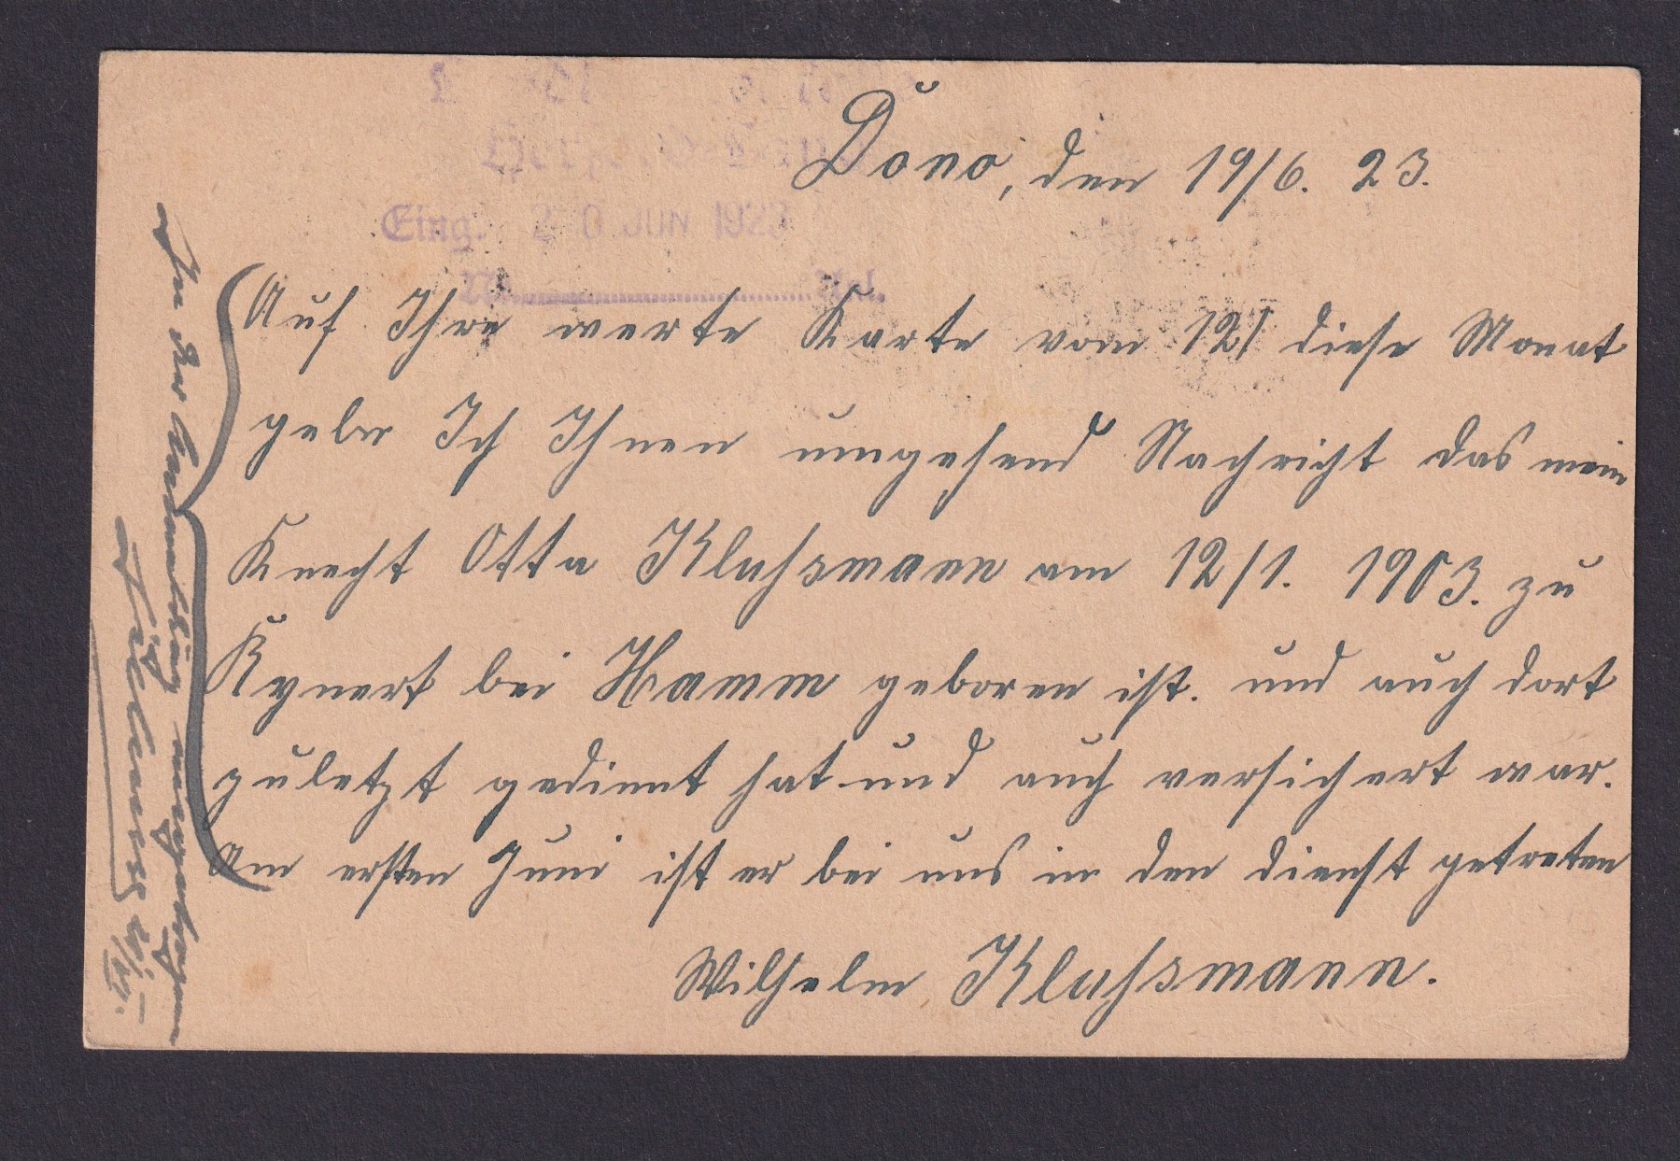 Dono, den 19/6. 23.
Eing. 20. JUN 1923
Auf Ihre werte Karte vom 12/ diese Monat
gebe Ich Ihnen umgehend Nachricht das mein
Knecht Otto Klußmann am 12/1. 1903. zu
bei Hamm geboren ist. und auch dort
zuletzt gedient hat und auch versichert war.
Am ersten Juni ist er bei uns in den dienst getreten
Wilhelm Klußmann.
In der